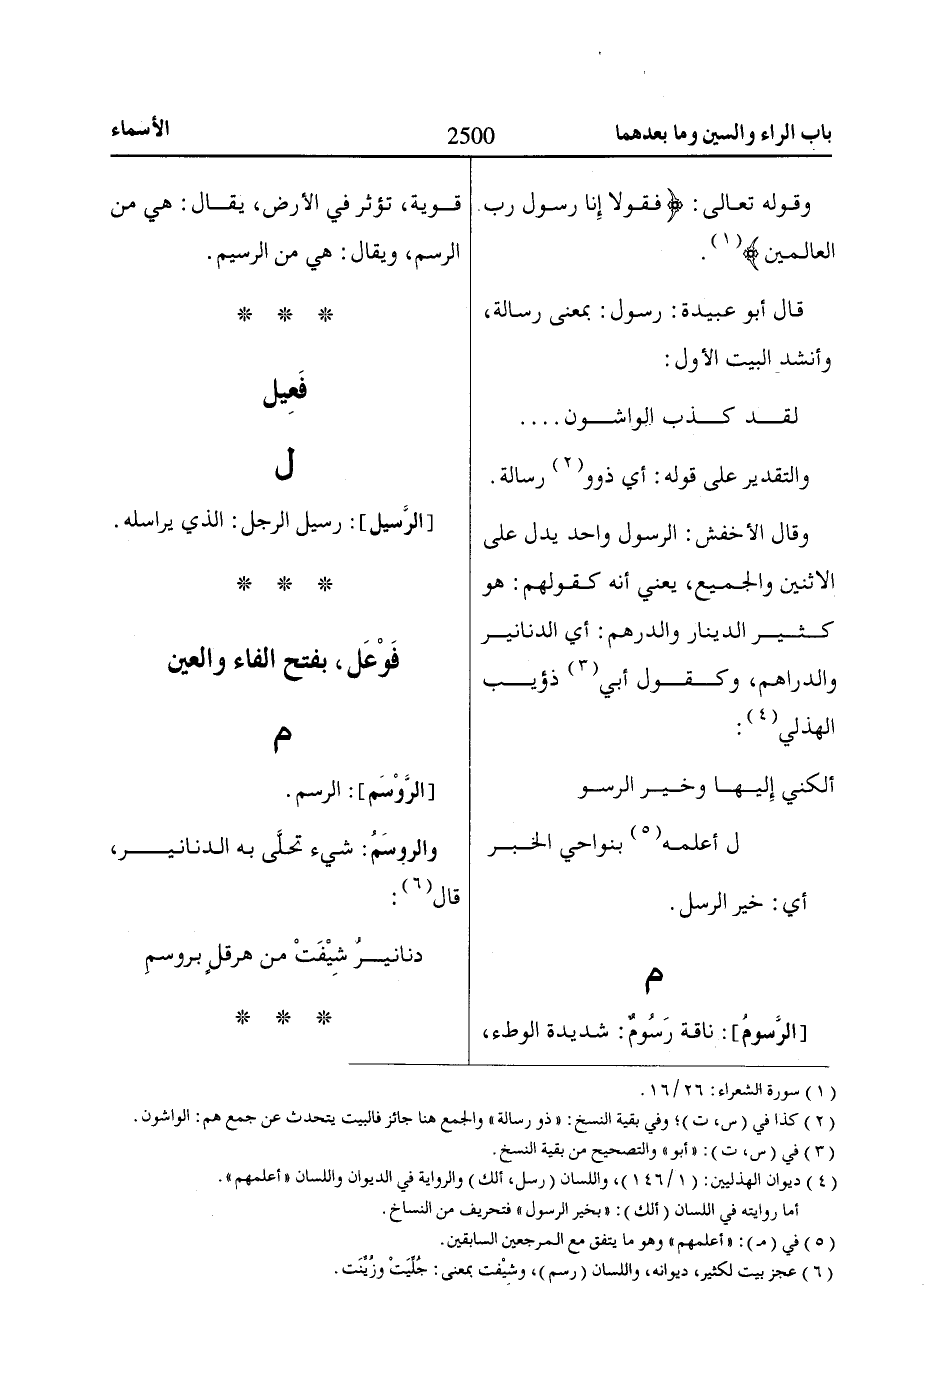 باب الراء والسين وما بعدهما
2500
الأسماء
وقوله تعالى: ﴿فقولا إنا رسول رب
العالمين﴾(١).
قال أبو عبيدة: رسول: بمعنى رسالة،
وأنشد البيت الأول:
لقد كذب الواشون....
والتقدير على قوله: أي ذوو(٢) رسالة.
وقال الأخفش: الرسول واحد يدل على
الاثنين والجميع، يعني أنه كقولهم: هو
كثير الدينار والدرهم: أي الدنانير
والدراهم، وكقول أبي(٣) ذؤيب
الهذلي(٤):
ألكني إليها وخير الرسو
ل أعلمه(٥) بنواحي الخبر
أي: خير الرسل.
م
[الرَّسومُ]: ناقة رَسُومٌ: شديدة الوطء،
قوية، تؤثر في الأرض، يقال: هي من
الرسم، ويقال: هي من الرسيم.
* * *
فَعِيل
ل
[الرَّسيل]: رسيل الرجل: الذي يراسله.
* * *
فَوْعَل، بفتح الفاء والعين
م
[الرَّوْسَم]: الرسم.
والروسَمُ: شيء تحلَّى به الدنانير،
قال(٦):
دنانيرُ شِيْفَتْ من هرقلٍ بروسمِ
* * *
(١) سورة الشعراء: ١٦/٢٦.
(٢) كذا في (س، ت)؛ وفي بقية النسخ: «ذو رسالة» والجمع هنا جائز فالبيت يتحدث عن جمع هم: الواشون.
(٣) في (س، ت): «أبو» والتصحيح من بقية النسخ.
(٤) ديوان الهذليين: (١٤٦/١)، واللسان (رسل، ألك) والرواية في الديوان واللسان «أعلمهم».
أما روايته في اللسان (ألك): «بخير الرسول» فتحريف من النساخ.
(٥) في (مـ): «أعلمهم» وهو ما يتفق مع المرجعين السابقين.
(٦) عجز بيت لكثير، ديوانه، واللسان (رسم)، وشِيْفت بمعنى: جُلِّيَتْ وزُيِّنَت.